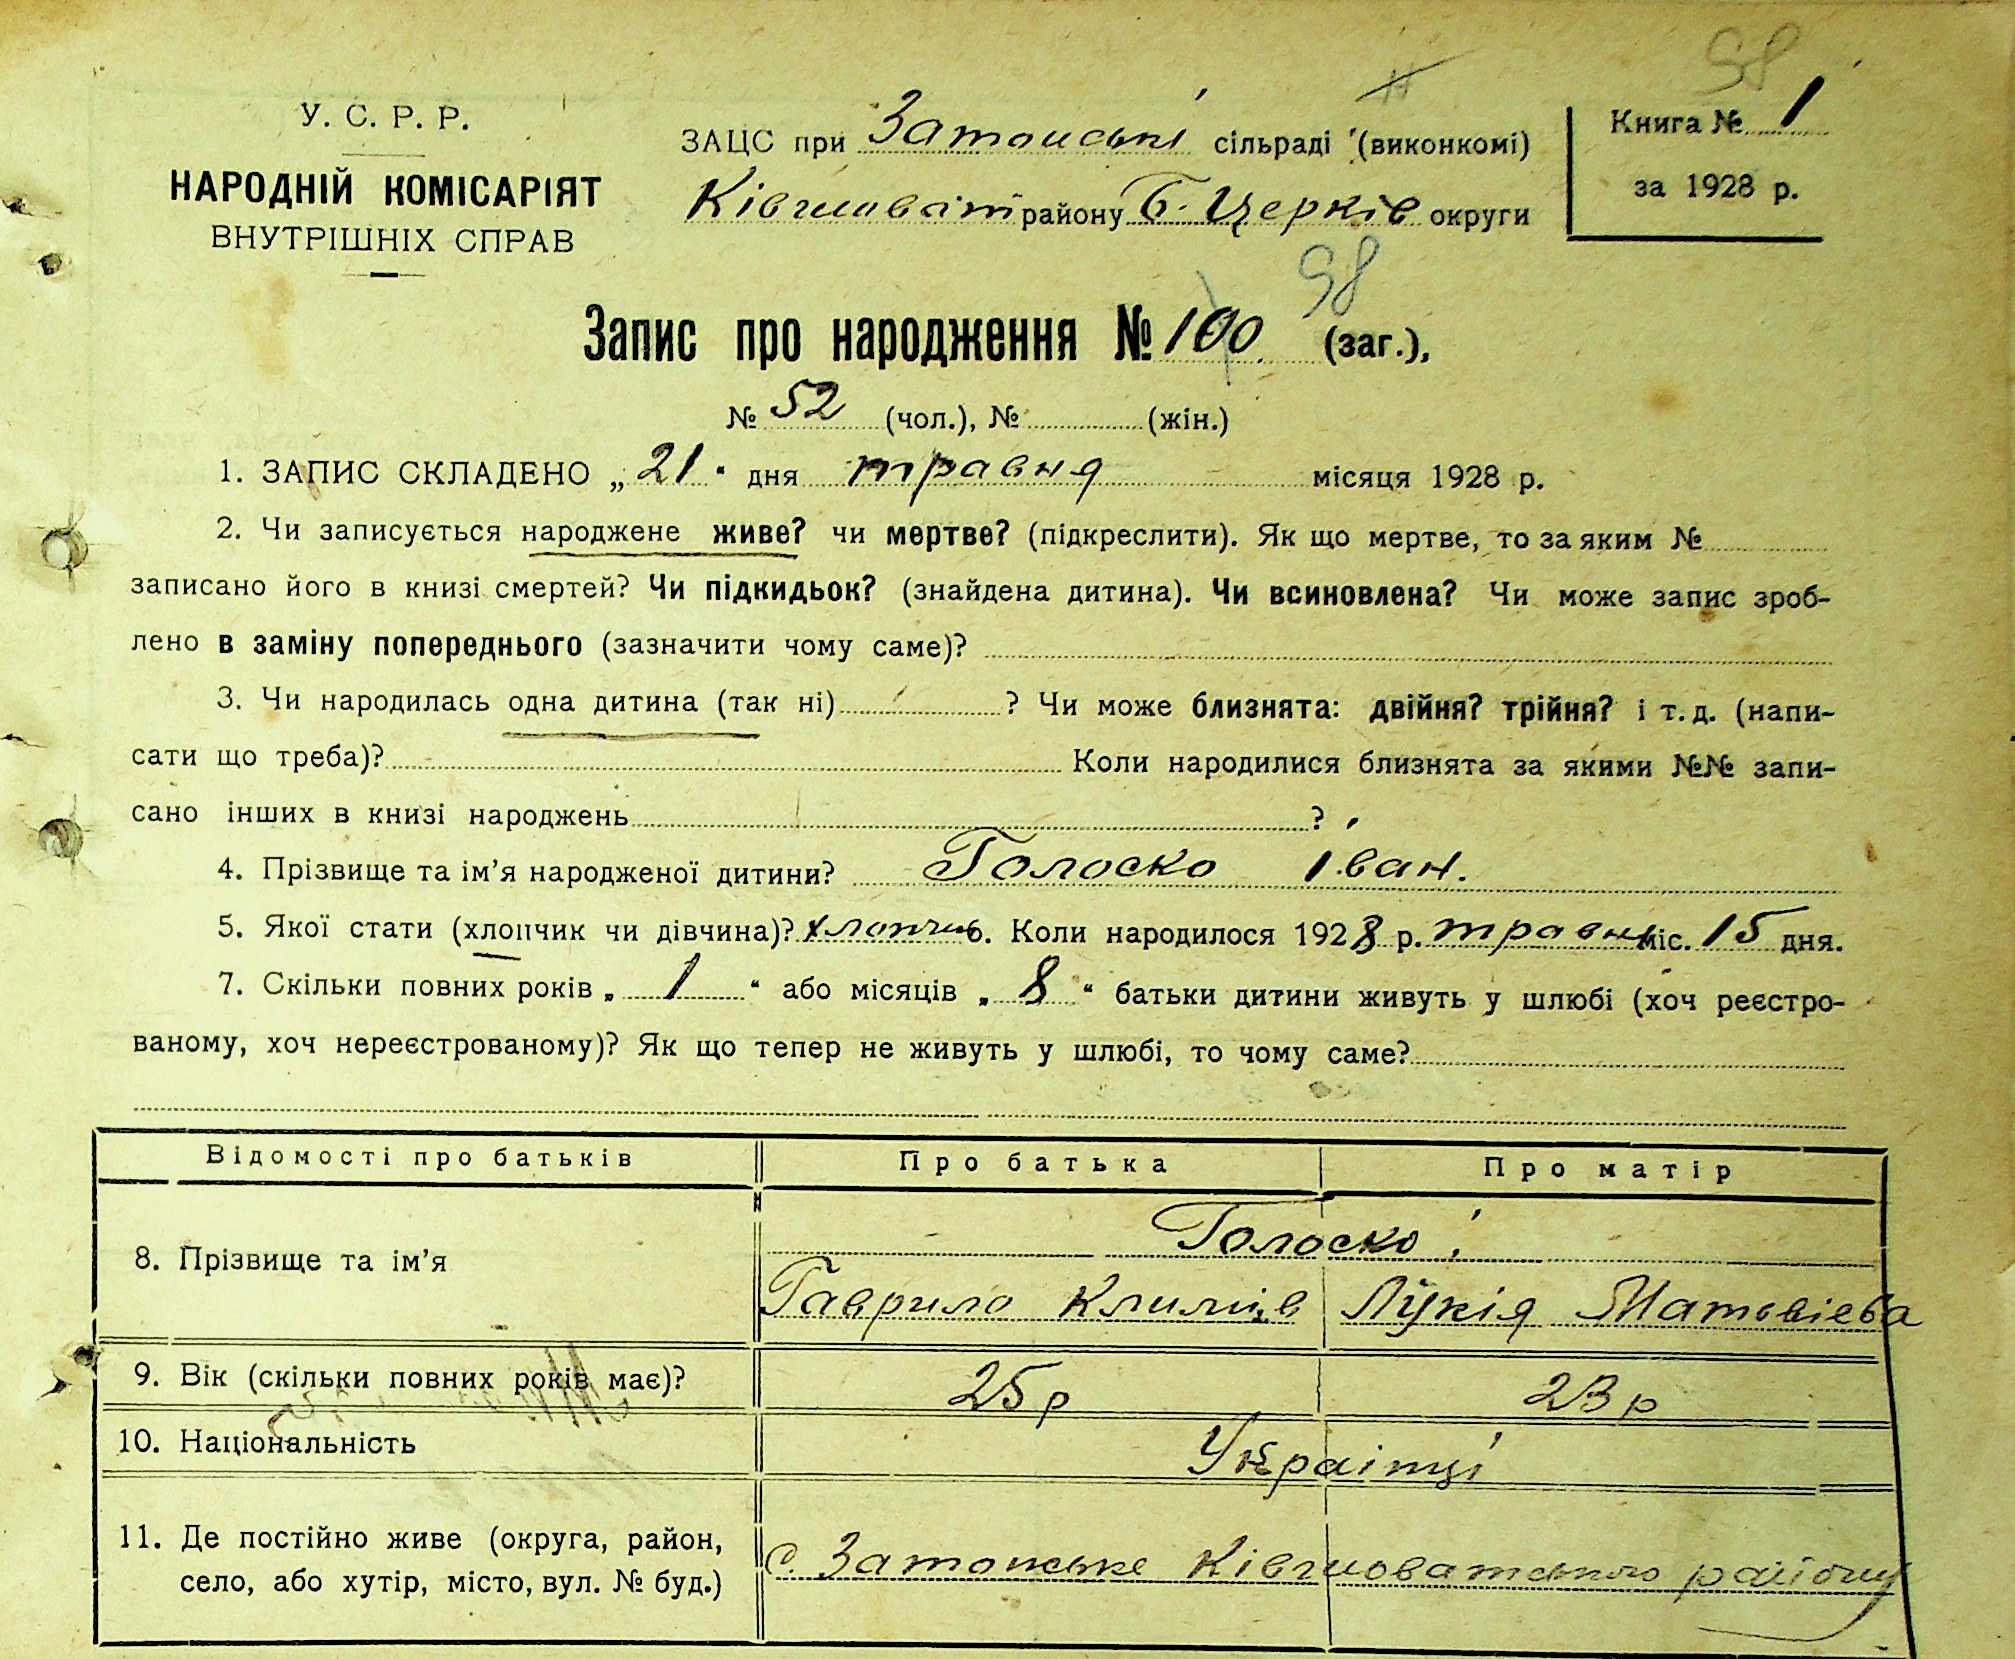 98
У. С. Р. Р.
НАРОДНІЙ КОМІСАРІЯТ
ВНУТРІШНІХ СПРАВ
ЗАЦС при Затонські сільраді (виконкомі)
Ківшоват району Б. Церків округи
Книга № 1
за 1928 р.
98
Запис про народження № 100 (заг.),
№ 52 (чол.), № (жін.)
1. ЗАПИС СКЛАДЕНО „21" дня травня місяця 1928 р.
2. Чи записується народжене живе? чи мертве? (підкреслити). Як що мертве, то за яким №
записано його в книзі смертей? Чи підкидьок? (знайдена дитина). Чи всиновлена? Чи може запис зроб-
лено в заміну попереднього (зазначити чому саме)?
3. Чи народилась одна дитина (так ні) ? Чи може близнята: двійня? трійня? і т. д. (напи-
сати що треба)? Коли народилися близнята за якими №№ запи-
сано інших в книзі народжень ?
4. Прізвище та ім'я народженої дитини? Голоско Іван.
5. Якої стати (хлопчик чи дівчина)? хлопчик 6. Коли народилося 1928 р. травня міс. 15 дня.
7. Скільки повних років „ 1 " або місяців „ 8 " батьки дитини живуть у шлюбі (хоч реєстро-
ваному, хоч нереєстрованому)? Як що тепер не живуть у шлюбі, то чому саме?
Відомості про батьків Про батька Про матір
8. Прізвище та ім'я Голоско
Гаврило Климів Лукія Матвієва
9. Вік (скільки повних років має)? 25 р 23 р
10. Національність Українці
11. Де постійно живе (округа, район,
село, або хутір, місто, вул. № буд.)
с. Затонське Ківшоватського району